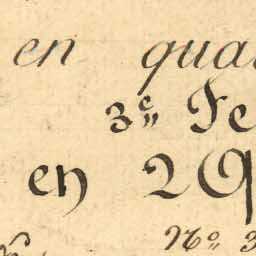 en qua
3e Fe
en 2
No 3